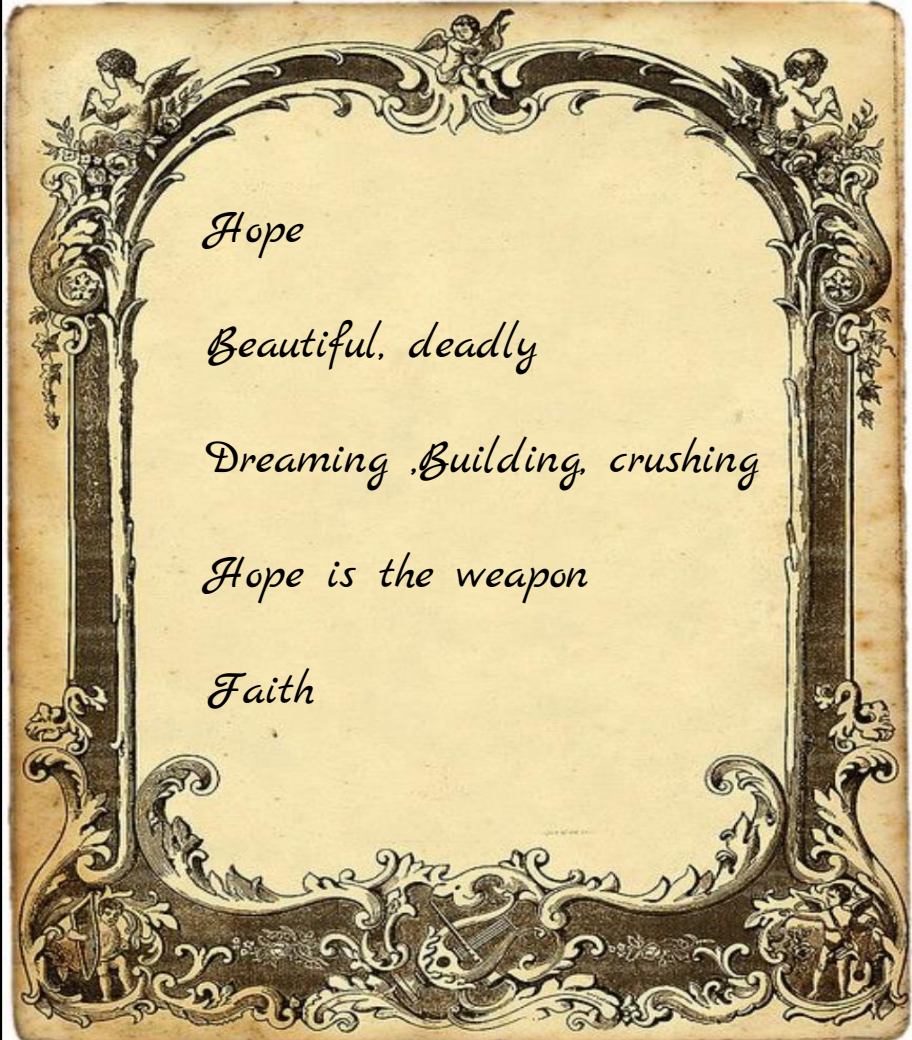 Hope
Beautiful, deadly
Dreaming ,Building, crushing
Hope is the weapon
Faith